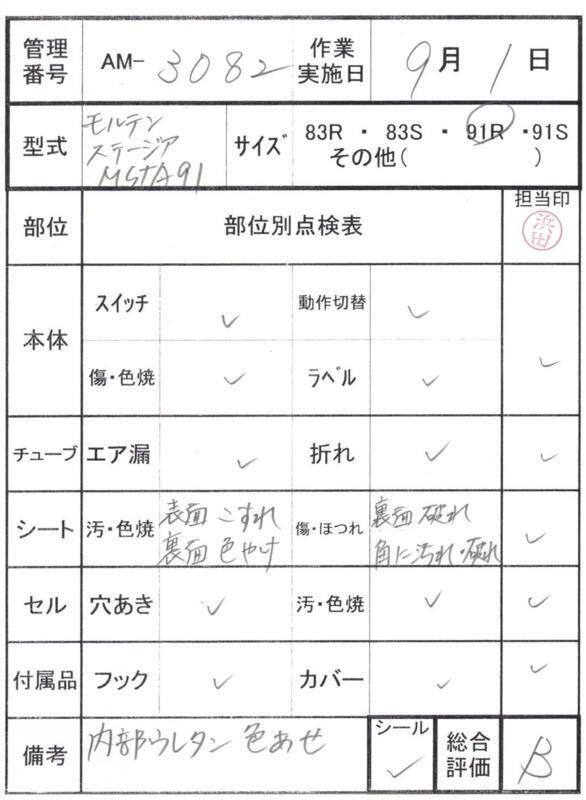 管理番号 AM- 3082 作業実施日 9月1日
型式 モルテン
ステージア
MSTA91
サイズ 83R ・ 83S ・ 91R ・91S
その他( )
部位 部位別点検表 担当印 浜田
本体 スイッチ ✓ 動作切替 ✓
傷・色焼 ✓ ラベル ✓ ✓
チューブ エア漏 ✓ 折れ ✓ ✓
シート 汚・色焼 表面 こすれ
裏面 色やけ
傷・ほつれ 裏面 破れ
角に汚れ・破れ ✓
セル 穴あき ✓ 汚・色焼 ✓ ✓
付属品 フック ✓ カバー ✓ ✓
備考 内部ウレタン 色あせ シール ✓ 総合評価 B